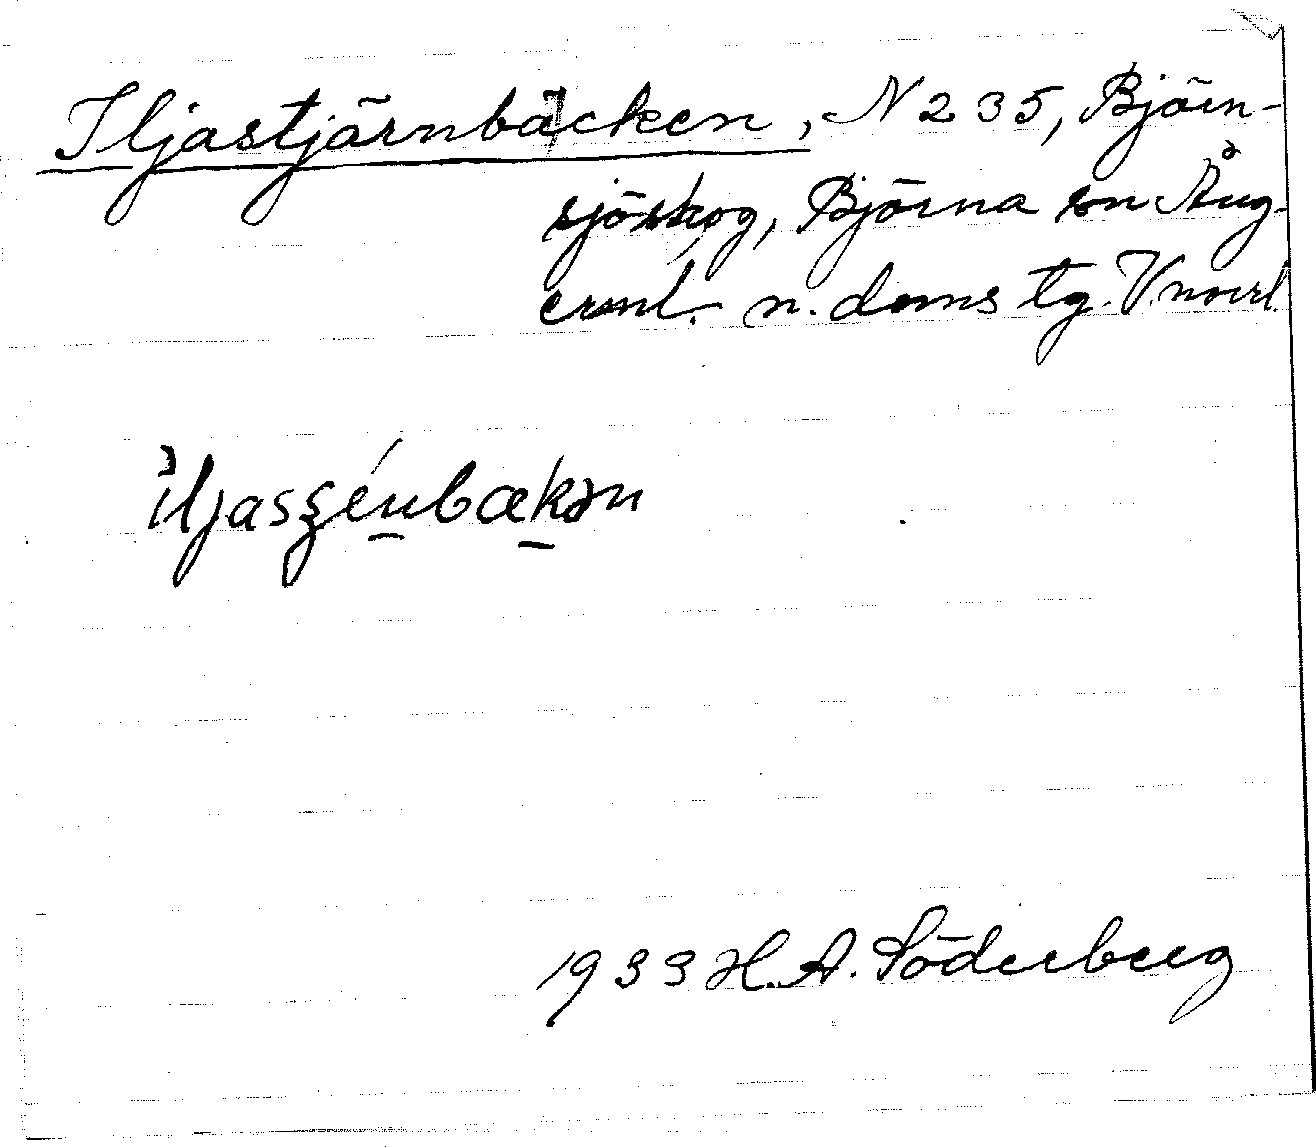 Iljastjärnbäcken, N 235, Björn-
sjöskog, Björna sn Ång-
erml. n. doms tg. V.norrl.
iljasʂénbækən
1933 H.A. Söderberg